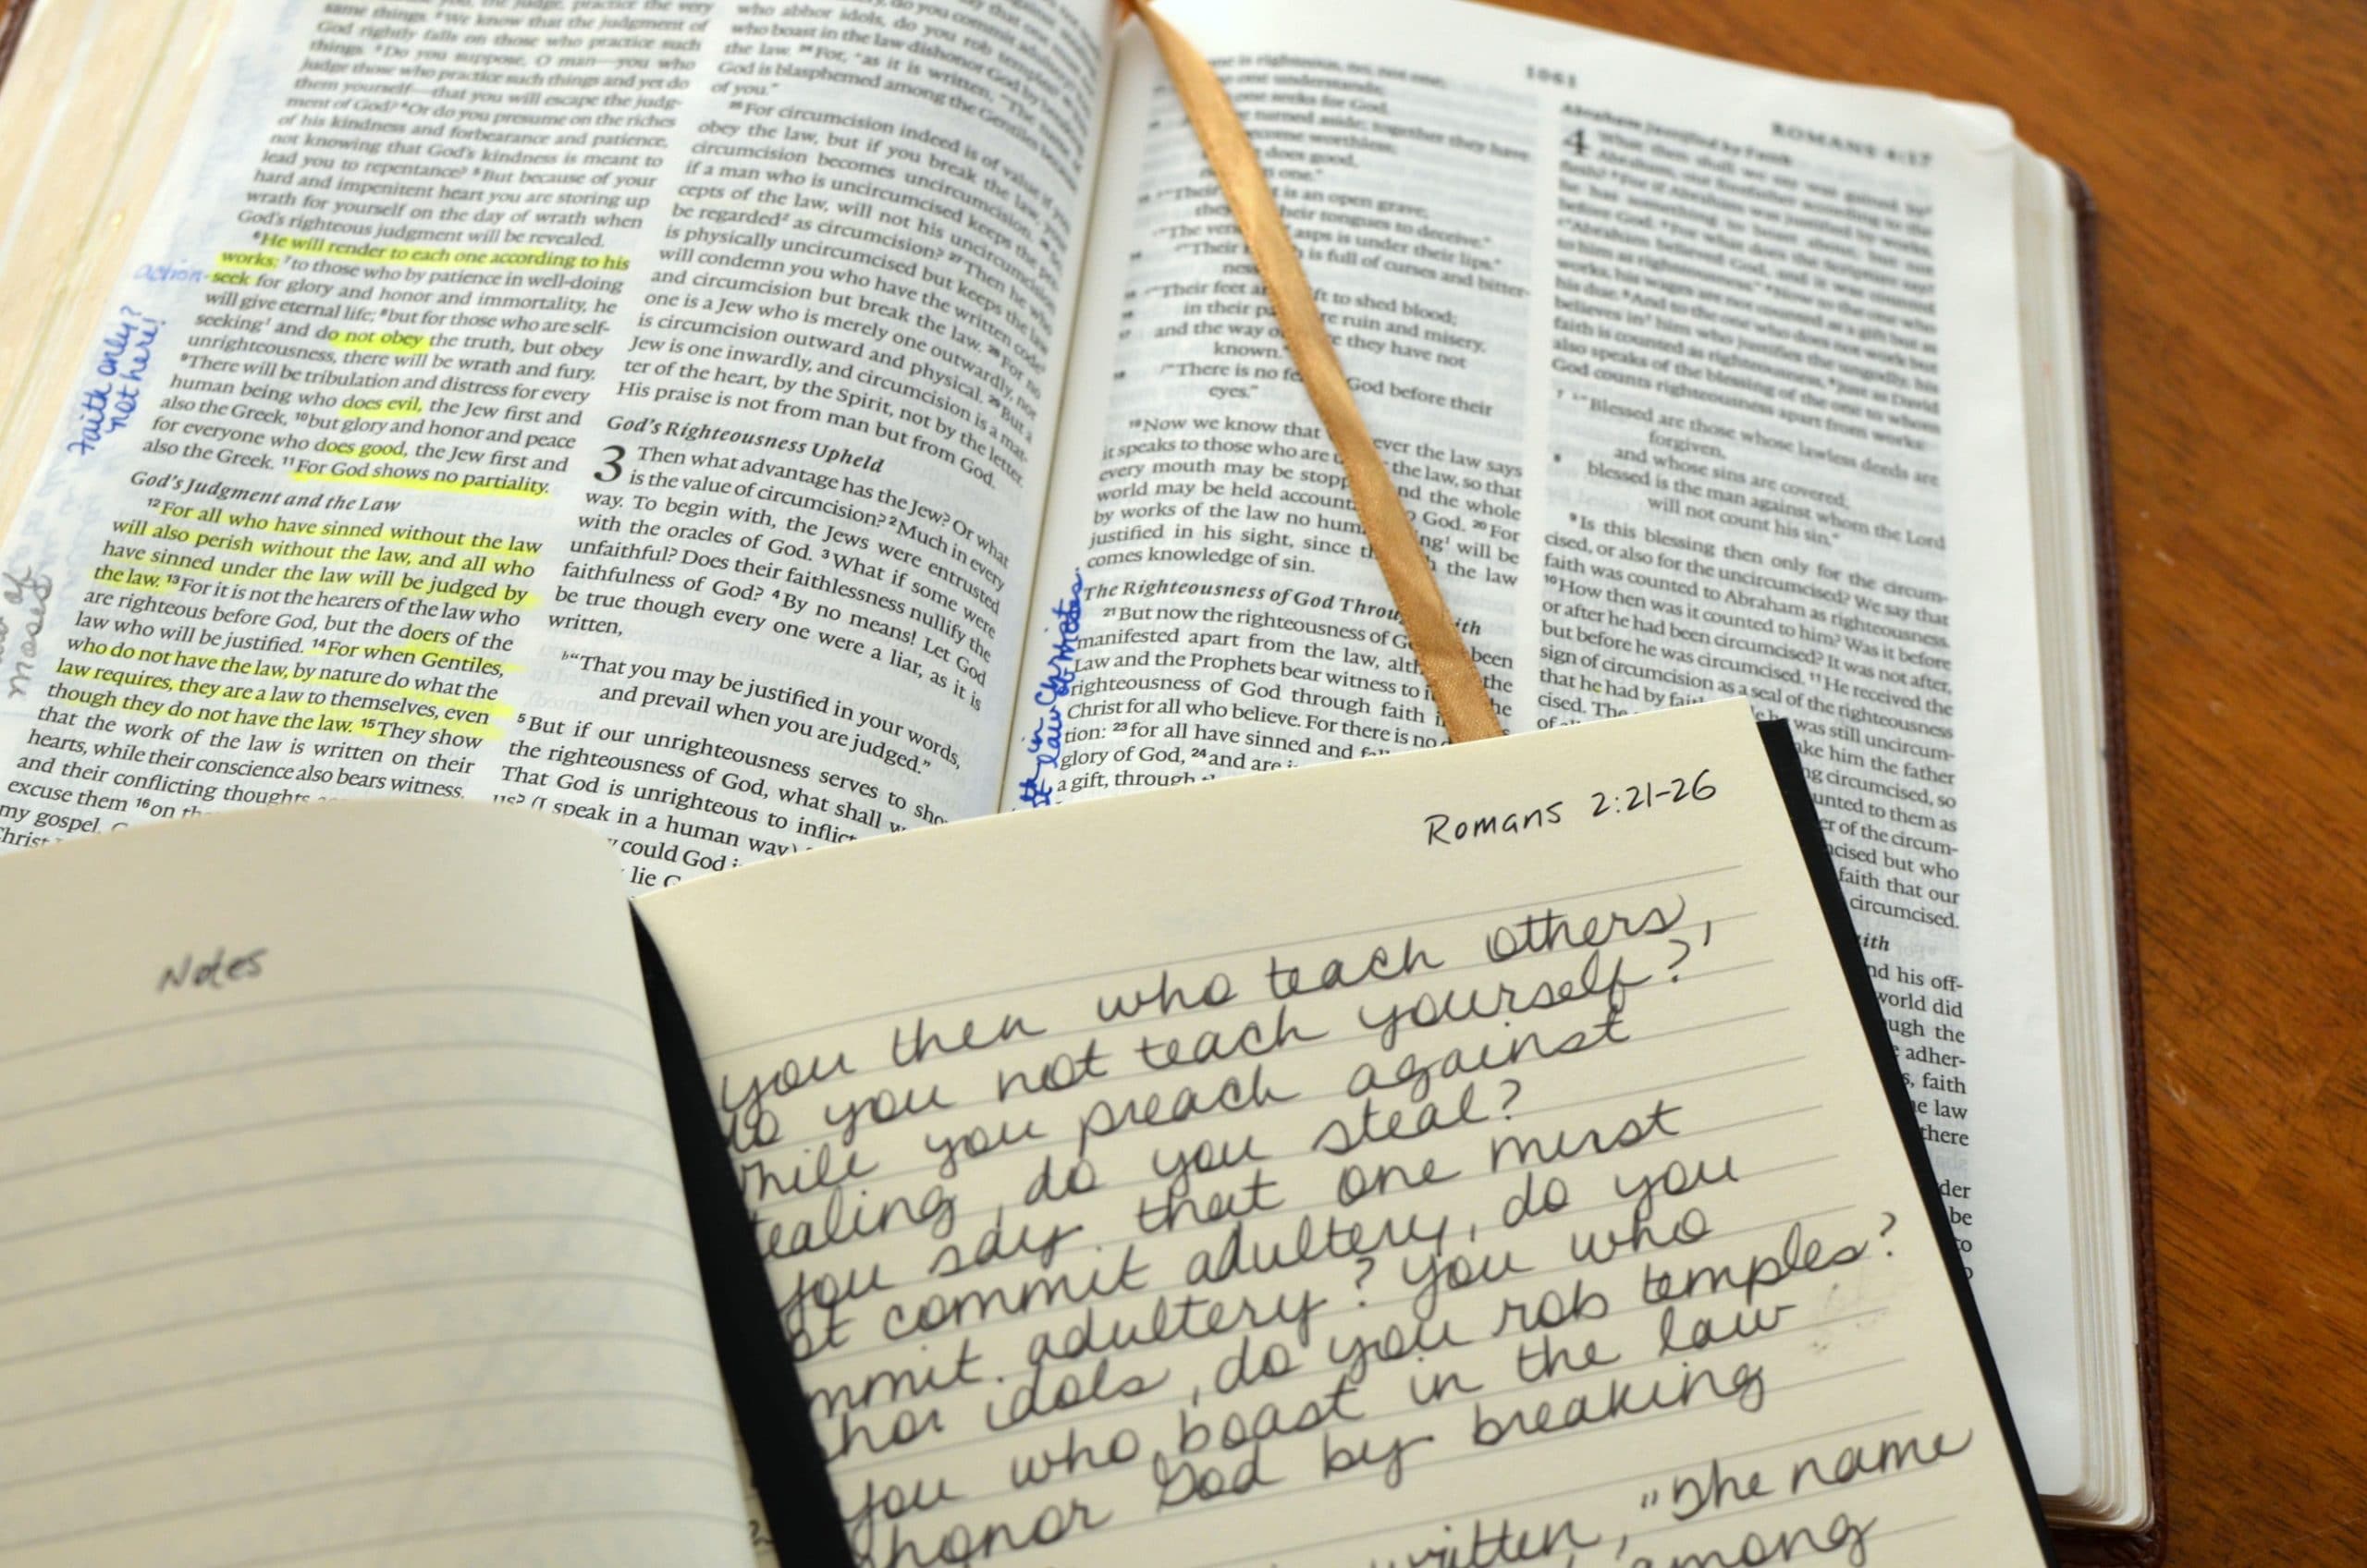 same things. ²We know that the judgment of
God rightly falls on those who practice such
things. ³Do you suppose, O man—you who
judge those who practice such things and yet do
them yourself—that you will escape the judg-
ment of God? ⁴Or do you presume on the riches
of his kindness and forbearance and patience,
not knowing that God's kindness is meant to
lead you to repentance? ⁵But because of your
hard and impenitent heart you are storing up
wrath for yourself on the day of wrath when
God's righteous judgment will be revealed.
⁶He will render to each one according to his
works: ⁷to those who by patience in well-doing
seek for glory and honor and immortality, he
will give eternal life; ⁸but for those who are self-
seeking¹ and do not obey the truth, but obey
unrighteousness, there will be wrath and fury.
⁹There will be tribulation and distress for every
human being who does evil, the Jew first and
also the Greek, ¹⁰but glory and honor and peace
for everyone who does good, the Jew first and
also the Greek. ¹¹For God shows no partiality.
God's Judgment and the Law
¹²For all who have sinned without the law
will also perish without the law, and all who
have sinned under the law will be judged by
the law. ¹³For it is not the hearers of the law who
are righteous before God, but the doers of the
law who will be justified. ¹⁴For when Gentiles,
who do not have the law, by nature do what the
law requires, they are a law to themselves, even
though they do not have the law. ¹⁵They show
that the work of the law is written on their
hearts, while their conscience also bears witness,
and their conflicting thoughts
excuse them ¹⁶on
my gospel,
Christ
action-
Faith only?
not here!
moses
who abhor idols, do you rob
who boast in the law dishonor God by
the law. ²⁴For, "as it is written, "The name
God is blasphemed among the Gentiles because
of you."
²⁵For circumcision indeed is of value if you
obey the law, but if you break the law, your
circumcision becomes uncircumcision. ²⁶So,
if a man who is uncircumcised keeps the pre-
cepts of the law, will not his uncircumcision
be regarded² as circumcision? ²⁷Then he who
is physically uncircumcised but keeps the law
will condemn you who have the written code³
and circumcision but break the law. ²⁸For no
one is a Jew who is merely one outwardly, nor
is circumcision outward and physical. ²⁹But a
Jew is one inwardly, and circumcision is a mat-
ter of the heart, by the Spirit, not by the letter.
His praise is not from man but from God.
God's Righteousness Upheld
3 Then what advantage has the Jew? Or what
is the value of circumcision? ²Much in every
way. To begin with, the Jews were entrusted
with the oracles of God. ³What if some were
unfaithful? Does their faithlessness nullify the
faithfulness of God? ⁴By no means! Let God
be true though every one were a liar, as it is
written,
ᵇ"That you may be justified in your words,
and prevail when you are judged."
⁵But if our unrighteousness serves to
the righteousness of God, what shall
That God is unrighteous to inflict
us? (I speak in a human way)
could God
lie
1061
ROMANS 4:17
one is righteous, no, not one;
one understands;
one seeks for God.
turned aside; together they have
become worthless;
does good,
one."
"Their is an open grave;
their tongues to deceive."
"The asps is under their lips."
"Their is full of curses and bitter-
"Their feet to shed blood;
in their ruin and misery,
and the way they have not
known."
"There is no God before their
eyes."
¹⁹Now we know that ever the law says
it speaks to those who are the law, so that
every mouth may be and the whole
world may be held God. ²⁰For
by works of the law no ing¹ will be
justified in his sight, since the law
comes knowledge of sin.
The Righteousness of God ith
²¹But now the righteousness of been
manifested apart from the law, the
Law and the Prophets bear witness to
righteousness of God through faith
Christ for all who believe. For there is no
tion: ²³for all have sinned and
glory of God, ²⁴and are
a gift, through
Abraham Justified by Faith
4 What then shall we say was gained by
Abraham, our forefather according to the
flesh? ²For if Abraham was justified by works,
he has something to boast about, but not
before God. ³For what does the Scripture say?
"Abraham believed God, and it was counted
to him as righteousness." ⁴Now to the one who
works, his wages are not counted as a gift but as
his due. ⁵And to the one who does not work but
believes in² him who justifies the ungodly, his
faith is counted as righteousness, ⁶just as David
also speaks of the blessing of the one to whom
God counts righteousness apart from works:
⁷ "Blessed are those whose lawless deeds are
forgiven,
and whose sins are covered;
⁸ blessed is the man against whom the Lord
will not count his sin."
⁹Is this blessing then only for the circum-
cised, or also for the uncircumcised? We say that
faith was counted to Abraham as righteousness.
¹⁰How then was it counted to him? Was it before
or after he had been circumcised? It was not after,
but before he was circumcised. ¹¹He received the
sign of circumcision as a seal of the righteousness
that he had by faith he was still uncircum-
cised. The make him the father
circumcised, so
counted to them as
of the circum-
but who
faith that our
circumcised.
and his off-
world did
the
adher-
faith
law
there
be
Notes
Romans 2:21-26
you then who teach others,
do you not teach yourself?
while you preach against
tealing, do you steal?
you say that one must
commit adultery, do you
mmit adultery? You who
hor idols, do you rob temples?
you who boast in the law
honor God by breaking
written, "The name
among